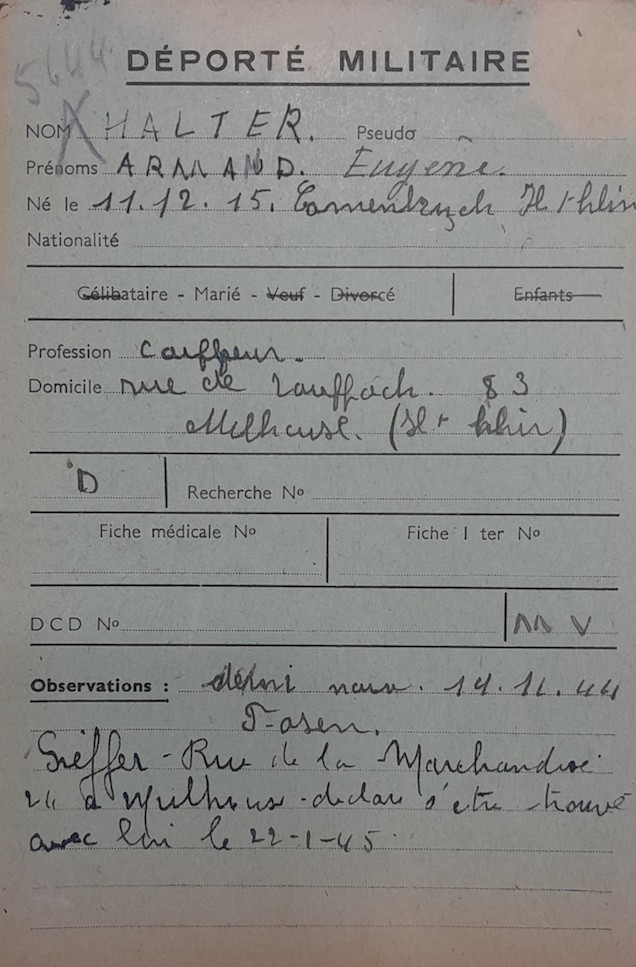 5644
DÉPORTÉ MILITAIRE
NOM X HALTER. Pseudo
Prénoms ARMAND. Eugène.
Né le 11.12.15. Ht rhin
Nationalité
Célibataire - Marié - Veuf - Divorcé Enfants
Profession Coiffeur.
Domicile rue de Rouffach. 83
Mulhouse. (Ht Rhin)
D Recherche No
Fiche médicale No Fiche 1 ter No
DCD No M V
Observations : 14.11.44
Grieffer - Rue de la Marchandise
à Mulhouse - declare s'être trouvé
avec lui le 22-1-45.